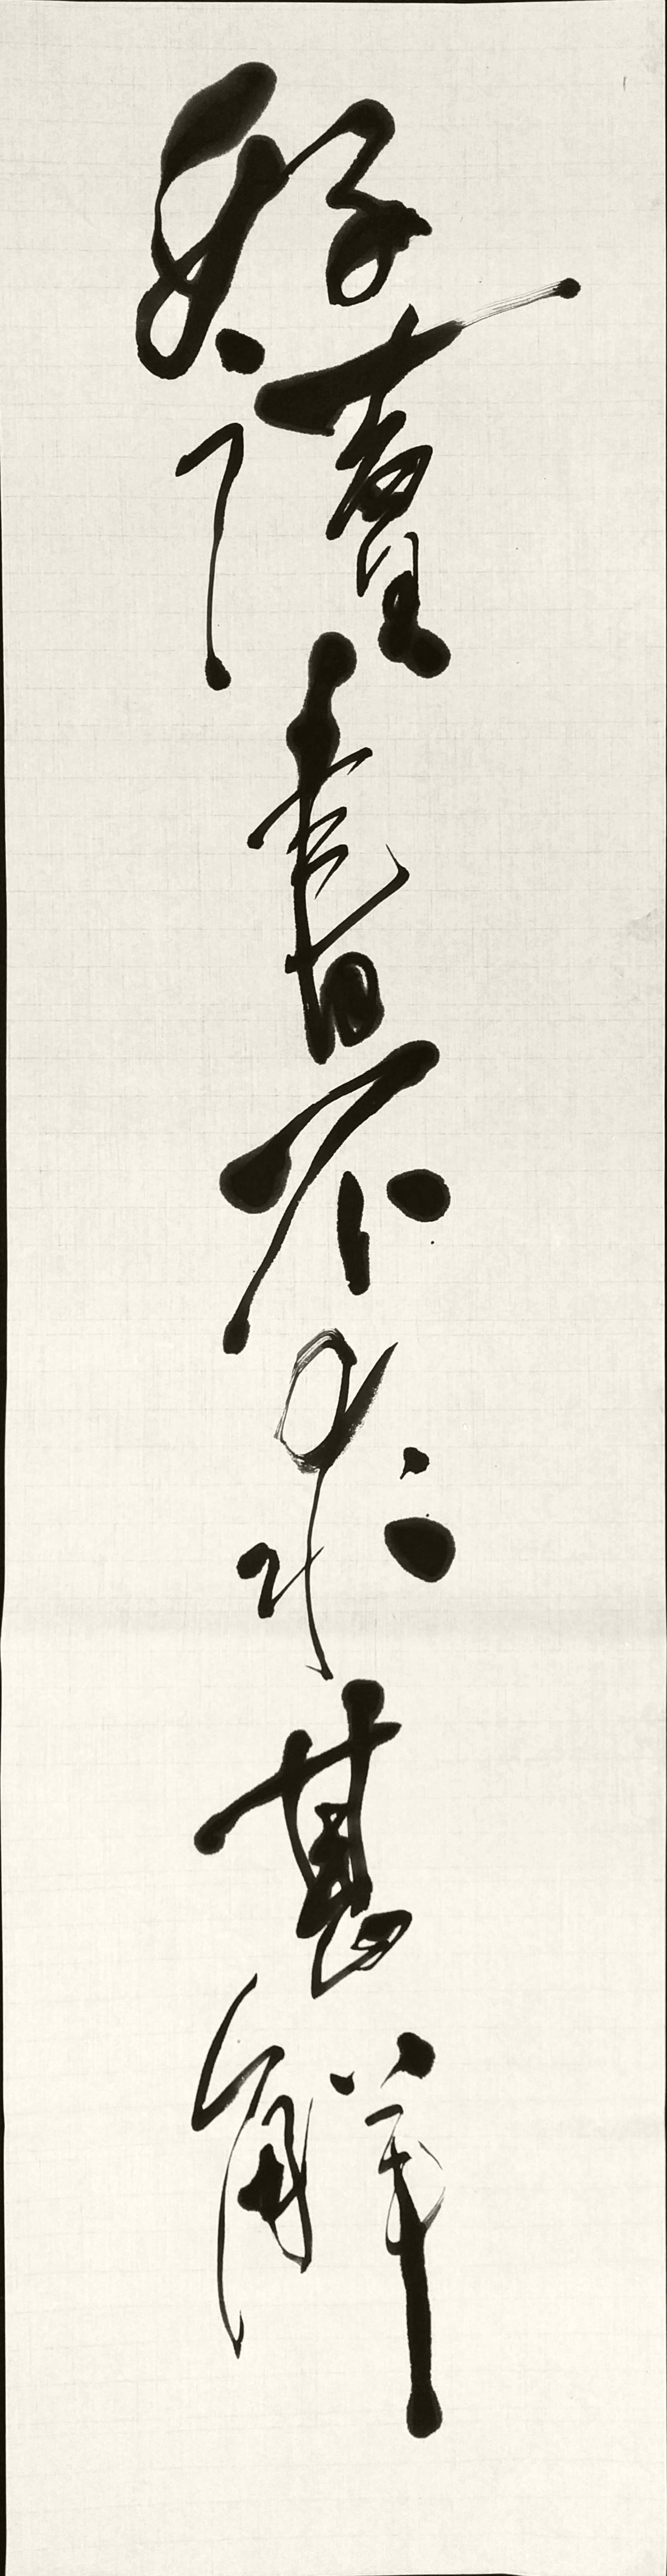 好讀書不求甚解